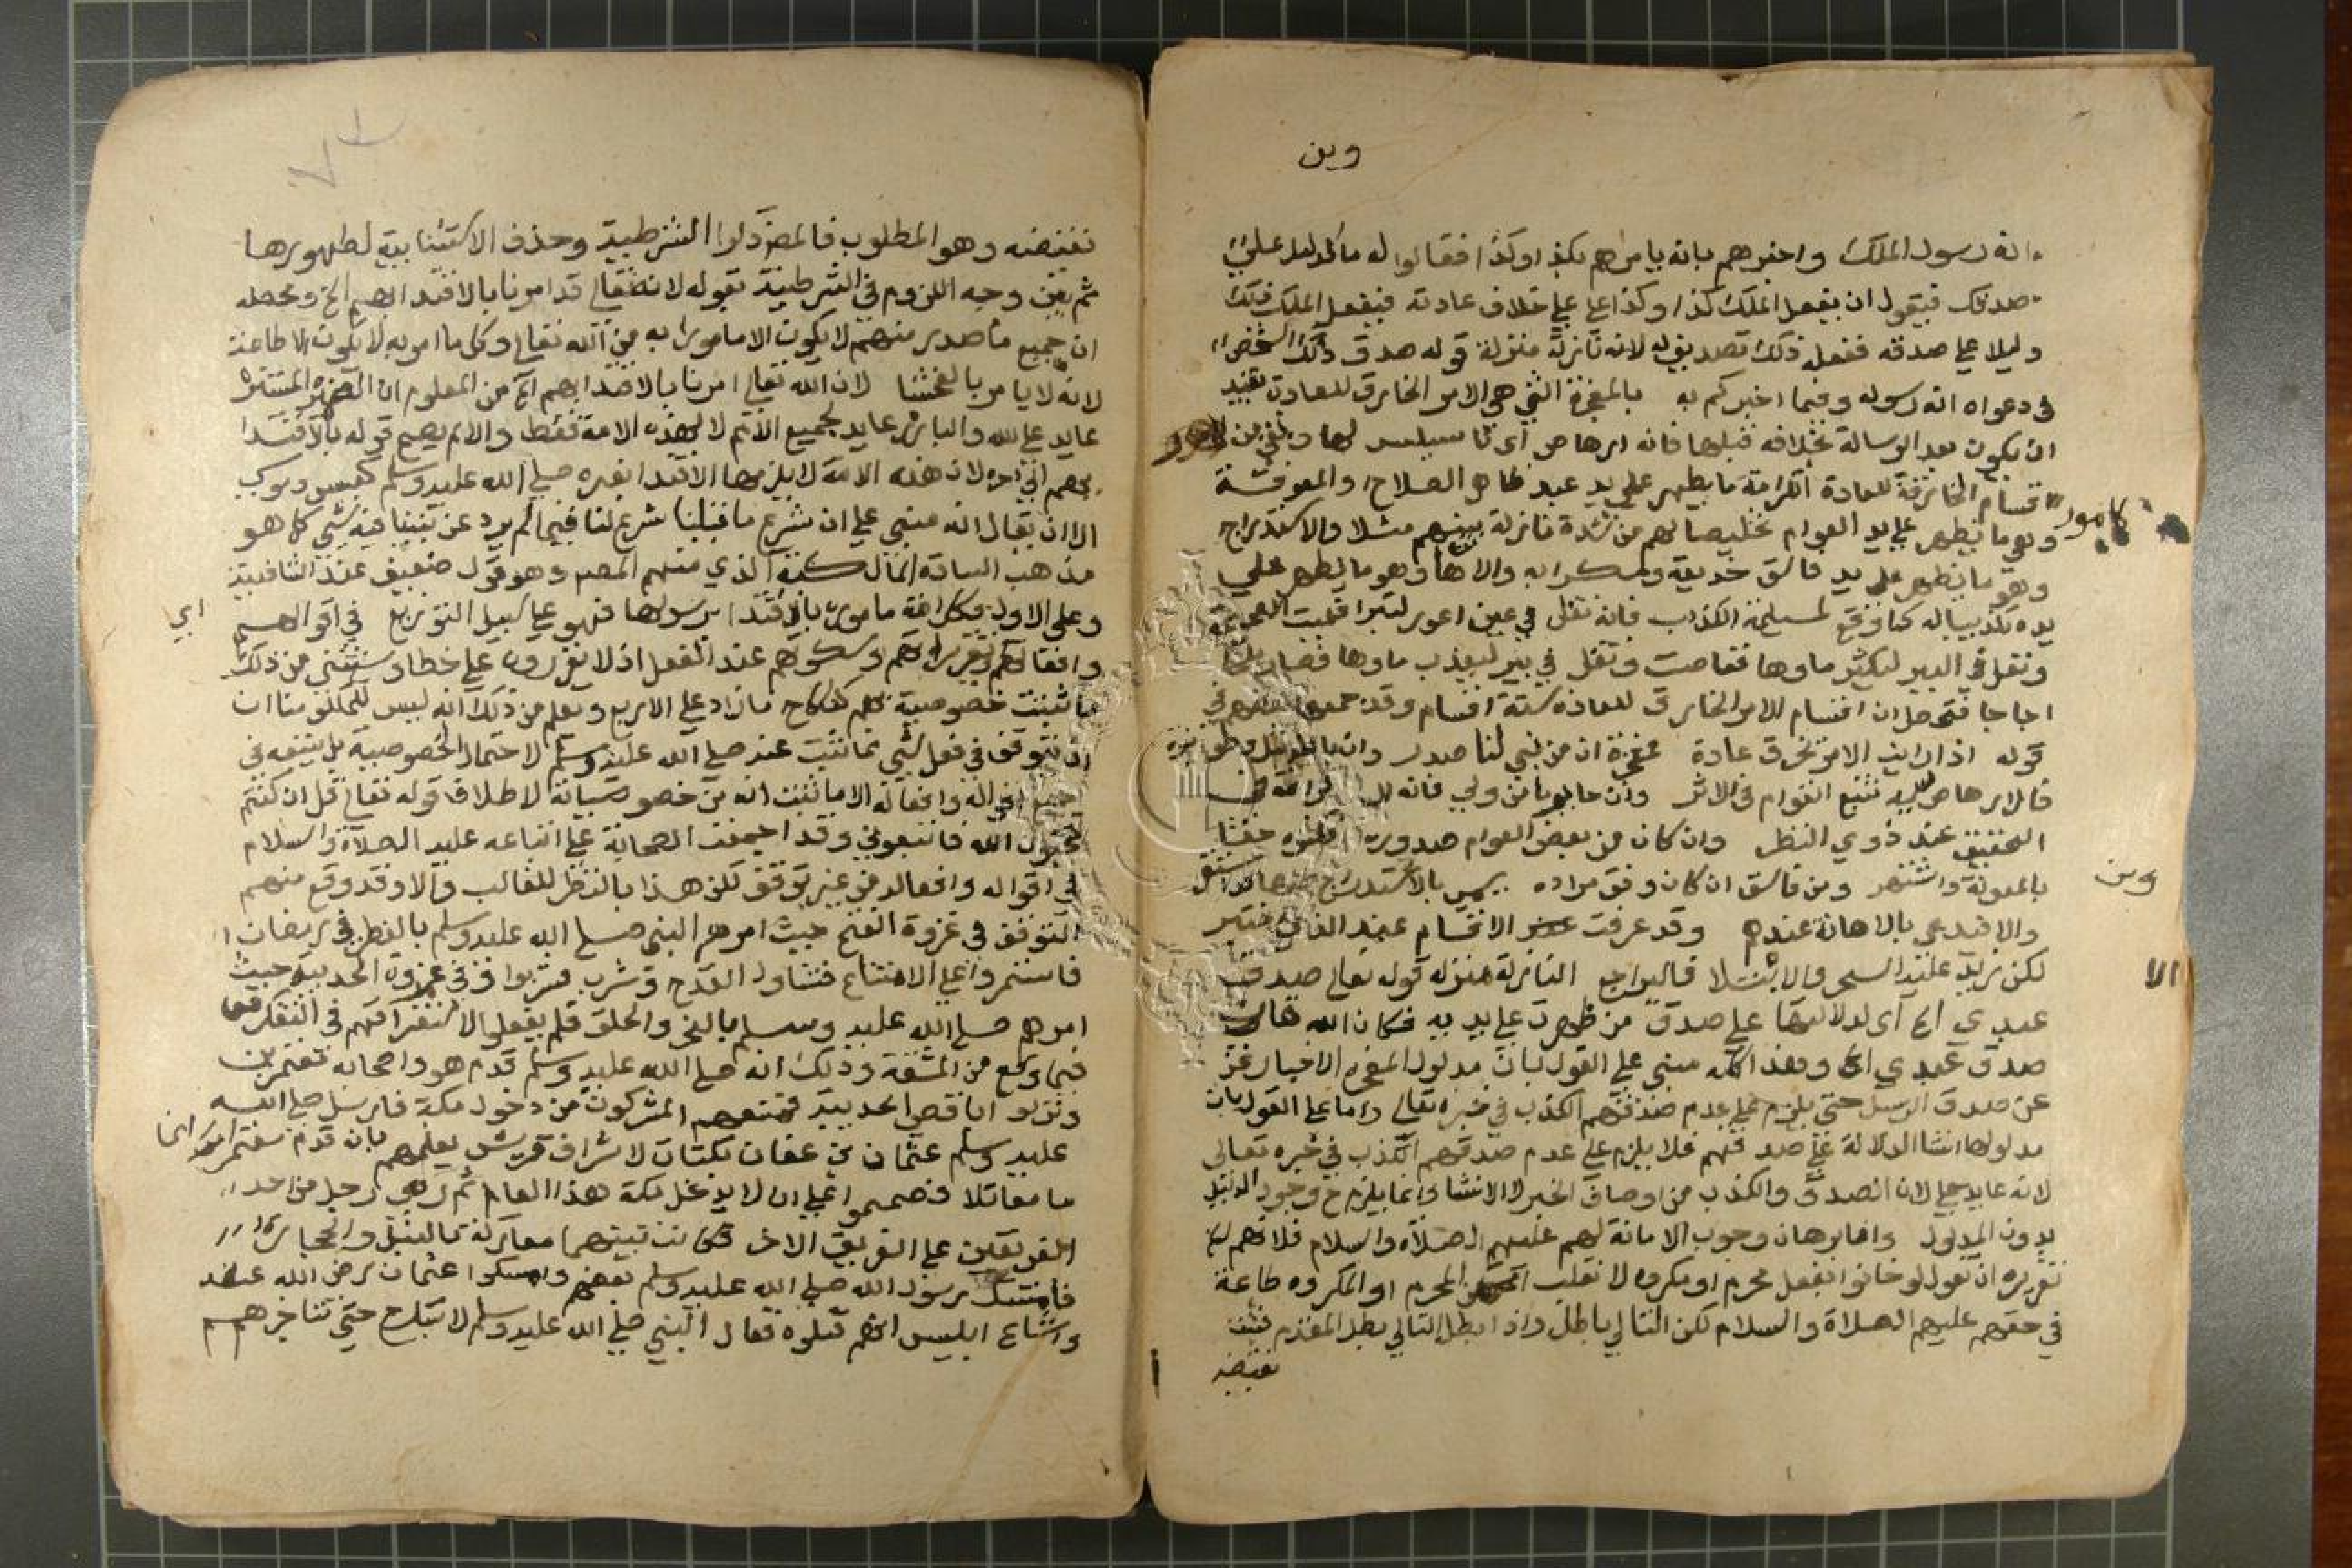 وبن
انه رسول الملك واخبرهم بانه يامرهم بكذا وكذا فقالوا له ما الدليل علي
صدقك فيقول ان يفعل الملك كذا وكذا علي خلاف عادته فيفعل الملك ذلك
دليلا علي صدقه ففعله ذلك تصديق له لانه نازل منزلة قوله صدق ذلك الشخص
في دعواه انه رسوله وفيما اخبركم به بالمعجزة التي هي الامر الخارق للعادة بقيد
ان يكون بعد الرسالة بخلافه قبلها فانه ارهاص اي تاسيس لها وبقي من
الاقسام الخارقة للعادة الكرامة ما يظهر علي يد عبد ظاهر الصلاح والمعونة
وهي ما يظهر علي يد العوام تخليصا لهم من شدة نازلة بهم مثلا والاستدراج
وهو ما يظهر علي يد فاسق خديعة ومكرا به والاهانة وهو ما يظهر علي
يده تكذيبا له كما وقع لمسيلمة الكذاب فانه تفل في عين اعور لتبرا فعميت الصحيحة
وتفل في البير ليكثر ماوها فغاصت وتفل في بير ليعذب ماوها فصار ملحا
اجاجا فتحصل ان اقسام الامر الخارق للعادة ستة اقسام وقد جمعها بعضهم في
قوله اذا رايت الامر يخرق عادة فمعجزة ان من نبي لنا صدر وان بان منه قبل وصف نبوة
فالارهاص سمه تتبع القوم في الاثر وان جا يوما من ولي فانه الكرامة في
التحقيق عند ذوي النظر وان كان من بعض العوام صدوره فكنوه حقا
بالمعونة واشتهر ومن فاسق ان كان وفق مراده يسمي بالاستدراج فيما قد استقر
والا فيدعي بالاهانة عندهم وقد عرفت الاقسام عند الذي اختبر
لكن زيد عليه السحر والابتلا فاليراجع النازلة منزلة قوله تعالي صدق
عبدي الخ اي لدلالتها علي صدق من ظهرت علي يديه فكان الله قال
صدق عبدي الخ وهذا كله مبني علي القول بان مدلول المعجزة الاخبار عن
عن صدق الرسل حتي يلزم علي عدم صدقهم الكذب في خبره تعالي واما علي القول بان
مدلولها انشا الدلالة علي صدقهم فلا يلزم علي عدم صدقهم الكذب في خبره تعالي
لانه عايد علي لان الصدق والكذب من اوصاف الخبر لا الانشا وانما يلزم ح وجود الدليل
بدون المدلول واما برهان وجوب الامانة لهم عليهم الصلاة والسلام فلانهم لو
تقريره ان تقول لو خانوا بفعل محرم او مكروه لانقلب المحرم او المكروه طاعة
في حقهم عليهم الصلاة والسلام لكن التالي باطل واذا بطل التالي بطل المقدم فثبت
نقيضه
وبن
الا
نقيضه وهو المطلوب فالمص ذكر الشرطية وحذف الاستثنايية لظهورها
ثم بين وجه اللزوم في الشرطية بقوله لانه تعالي قد امرنا بالاقتدا بهم الخ ومحصله
ان جميع ما صدر منهم لا يكون الا مامورا به من الله تعالي وكل ما امر به لا يكون الا طاعة
لانه لا يامر بالفحشا لان الله تعالي امرنا بالاقتدا بهم الخ من المعلوم ان الضمير المستتر
عايد علي الله والبارز عايد لجميع الامم لا لهذه الامة فقط والا لم يصح قوله بالاقتدا
بهم الخ لان هذه الامة لا يلزمها الاقتدا بغيره صلي الله عليه وسلم كعيسي وموسي
الا ان يقال انه مبني علي ان شرع ما قبلنا شرع لنا فيما لم يرد عن نبينا فيه شي كما هو
مذهب السادة المالكية الذي منهم المص وهو قول ضعيف عند الشافعية
وعلي الاول فكل امة مامورة بالاقتدا برسولها فهو علي سبيل التوزيع في اقوالهم
وافعالهم وتقريراتهم وسكوتهم عند الفعل اذ لا يقرون علي خطا ويستثني من ذلك
ما ثبتت خصوصية بهم كنكاح ما زاد علي الاربع ويعلم من ذلك انه ليس للمكلف منا ان
ان يتوقف في فعل شي مما ثبت عنه صلي الله عليه وسلم لاحتمال الخصوصية بل يتبعه في
جميع اقواله وافعاله الا ما ثبت انه من خصوصياته لاطلاق قوله تعالي قل ان كنتم
تحبون الله فاتبعوني وقد اجمعت الصحابة علي اتباعه عليه الصلاة والسلام
في اقواله وافعاله من غير توقف لكن هذا بالنظر للغالب والا وقد وقع منهم
التوقف في غزوة الفتح حيث امرهم النبي صلي الله عليه وسلم بالفطر في رمضان
فاستمروا علي الامتناع فتناول القدح وشرب فشربوا وفي غزوة الحديبية حيث
امرهم صلي الله عليه وسلم بالنحر والحلق فلم يفعلوا لاستغراقهم في التفكر
فيما وقع من المشقة وذلك انه صلي الله عليه وسلم قدم هو واصحابه معتمرين
ونزلوا باقصي الحديبية فمنعهم المشركون من دخول مكة فارسل صلي الله
عليه وسلم عثمان بن عفان بكتاب لاشراف قريش يعلمهم بان قدم معتمرا
لا مقاتلا فصمموا علي ان لا يدخل مكة هذا العام ثم رمي رجل من احد
الفريقين علي الفريق الاخر فكانت بينهما معاركة بالنبل والحجارة
فامسك رسول الله صلي الله عليه وسلم بعضهم وامسكوا عثمان رضي الله عنه
واشاع ابليس انهم قتلوه فقال النبي صلي الله عليه وسلم لا نبرح حتي نناجزهم